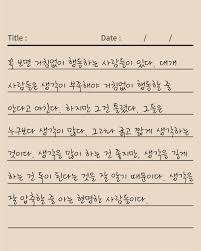 Title : Date : / /
꼭 보면 거침없이 행동하는 사람들이 있다. 대개
사람들은 생각이 부족해야 거침없이 행동할 줄
안다고 여긴다. 하지만 그건 틀렸다. 그들은
누구보다 생각이 많다. 그러나 굵고 짧게 생각하는
것이다. 생각을 많이 하는 건 좋지만, 생각을 길게
하는 건 독이 된다는 것을 잘 알기 때문이다. 생각을
잘 압축할 줄 아는 현명한 사람들이다.